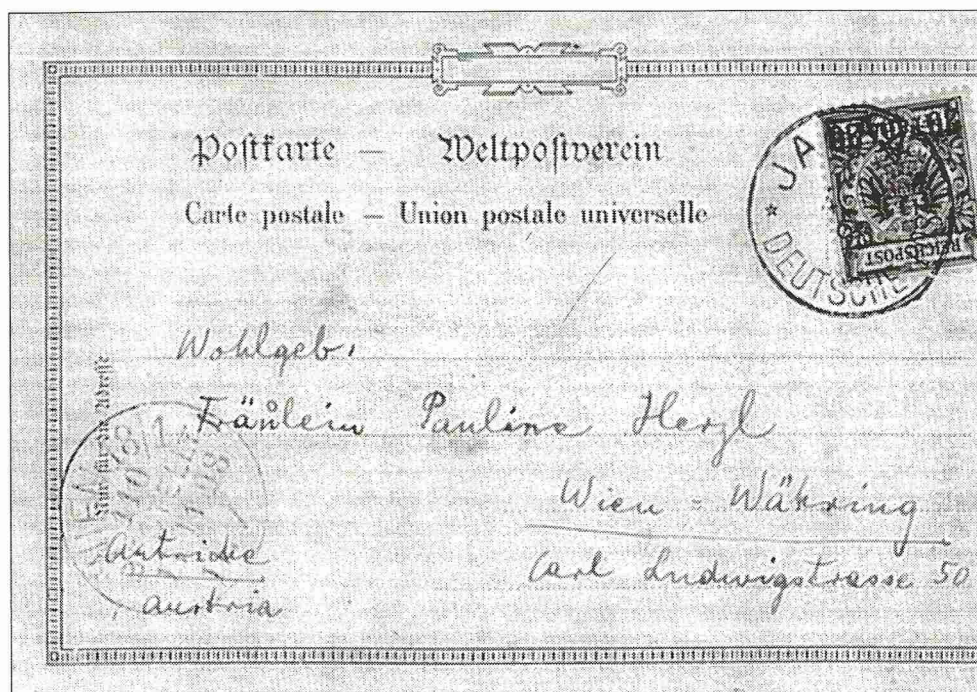 Postkarte — Weltpostverein
Carte postale — Union postale universelle
JA
* DEUTSCHE
REICHSPOST
Wohlgeb.
Fräulein Pauline Herzl
Wien - Währing
Carl Ludwigstrasse 50
Nur für die Adresse
Autriche
Austria